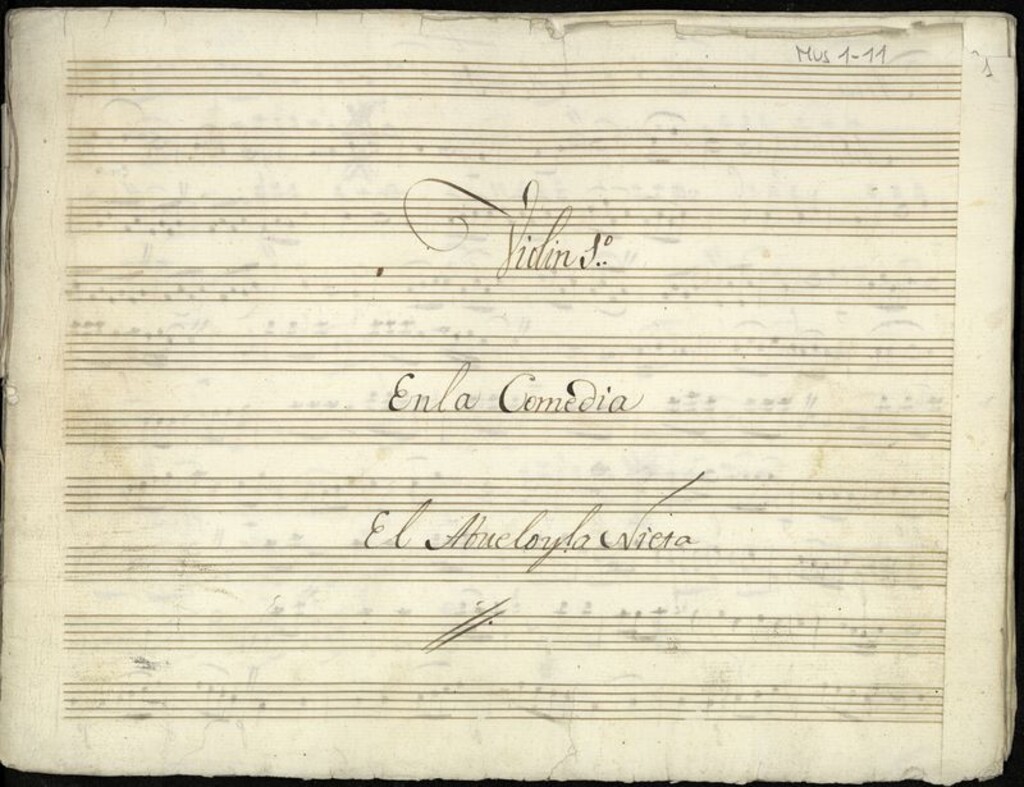 Mus 1-11
1
Violin 1.º
Enla Comedia
El Abueloyla Nieta